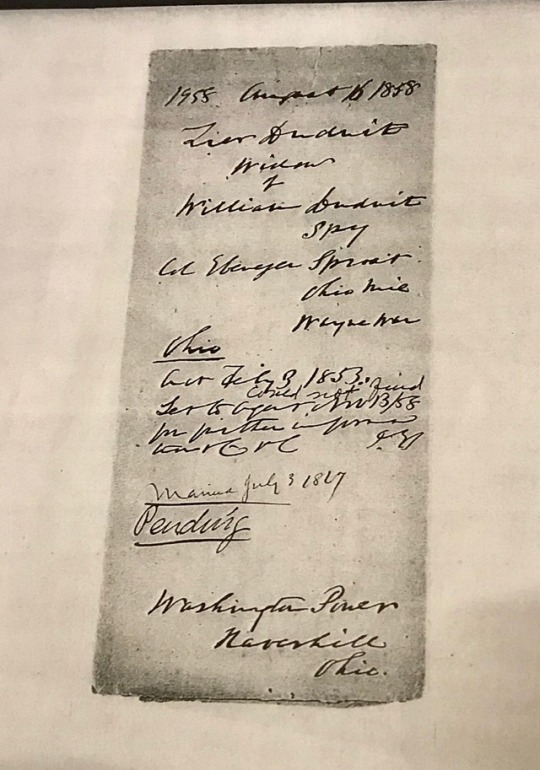 1958 August 16 1858
Zier Duduit
Widow
of
William Duduit
Spy
Col Ebenezer Sproat
Ohio Mil
Wayne War
Ohio
Act Feby 3, 1853.
Could not find
Let to agent Nov 13/58
for further
Married July 3 1827
Pending
Washington Power
Haverhill
Ohio.